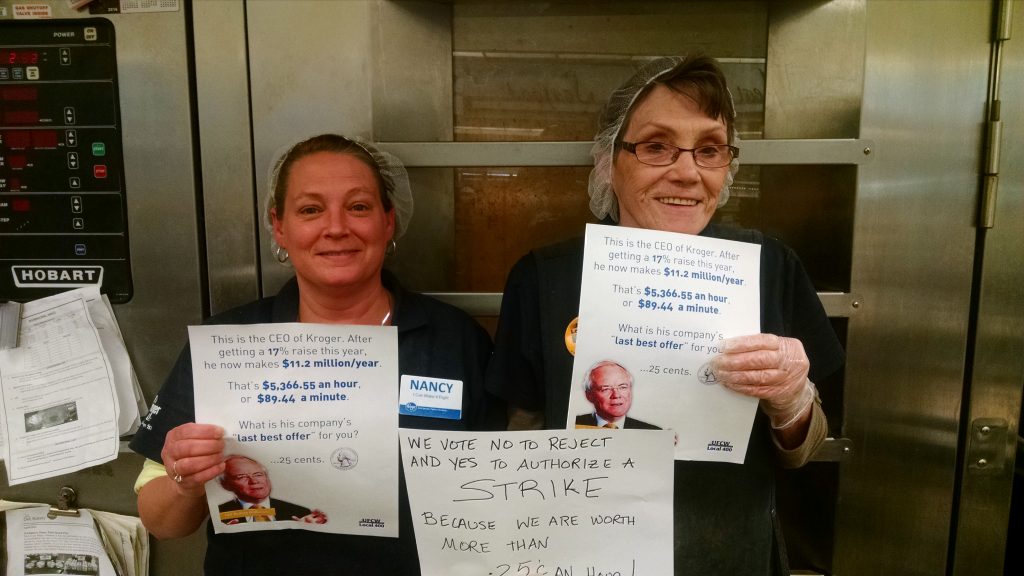 GAS SHUTOFF
VALVE INSIDE
2016
POWER
ON
OFF
HOBART
This is the CEO of Kroger. After
getting a 17% raise this year,
he now makes $11.2 million/year.
That's $5,366.55 an hour,
or $89.44 a minute.
What is his company's
"last best offer" for you?
...25 cents.
UFCW
Local 400
NANCY
I Can Make it Right
This is the CEO of Kroger. After
getting a 17% raise this year,
he now makes $11.2 million/year.
That's $5,366.55 an hour,
or $89.44 a minute.
What is his company's
"last best offer" for you
...25 cents.
UFCW
Local 400
WE VOTE NO TO REJECT
AND YES TO AUTHORIZE A
STRIKE
BECAUSE WE ARE WORTH
MORE THAN
.25¢ AN HOUR!